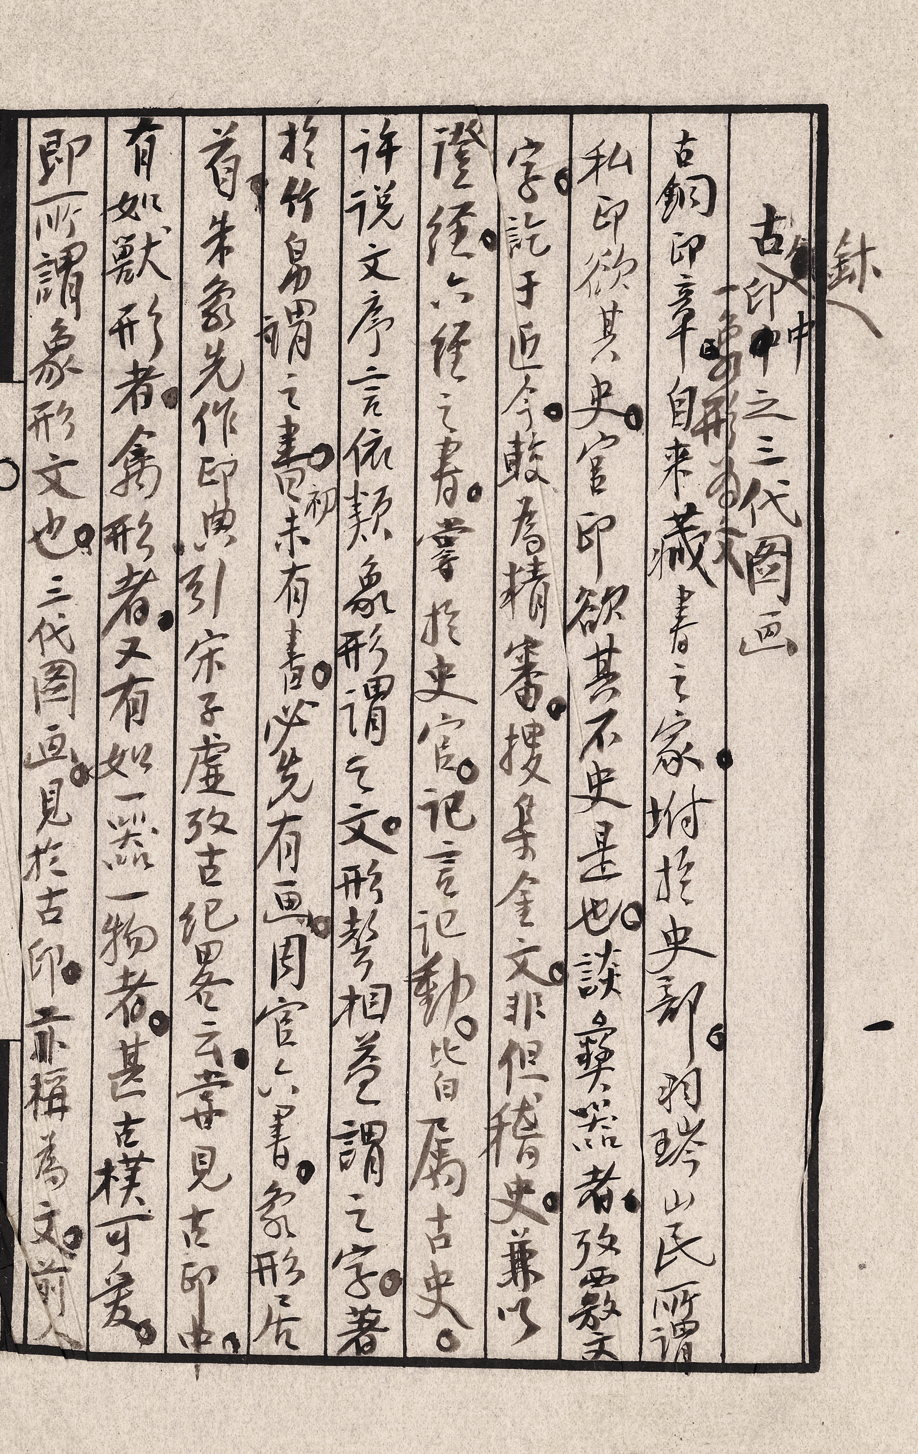 古鉨印中之三代图画
一象形為文
古銅印章自来藏書之家坿於史部羽琌山民所谓
私印欲其史官印欲其不史是也談彝器者攷覈文
字訖于近今較為精審搜集金文非但稽史兼以
證經六經之書掌於史官記言記動皆属古史
许说文序言依類象形謂之文形聲相益謂之字著
於竹帛謂之書初未有書必先有画周官六書象形居
首朱象先作印典引宋子虚攷古纪畧云嘗見古印中
有如獸形者禽形者又有如一器一物者甚古樸可爱
即所謂象形文也三代图画見於古印亦稱為文前人